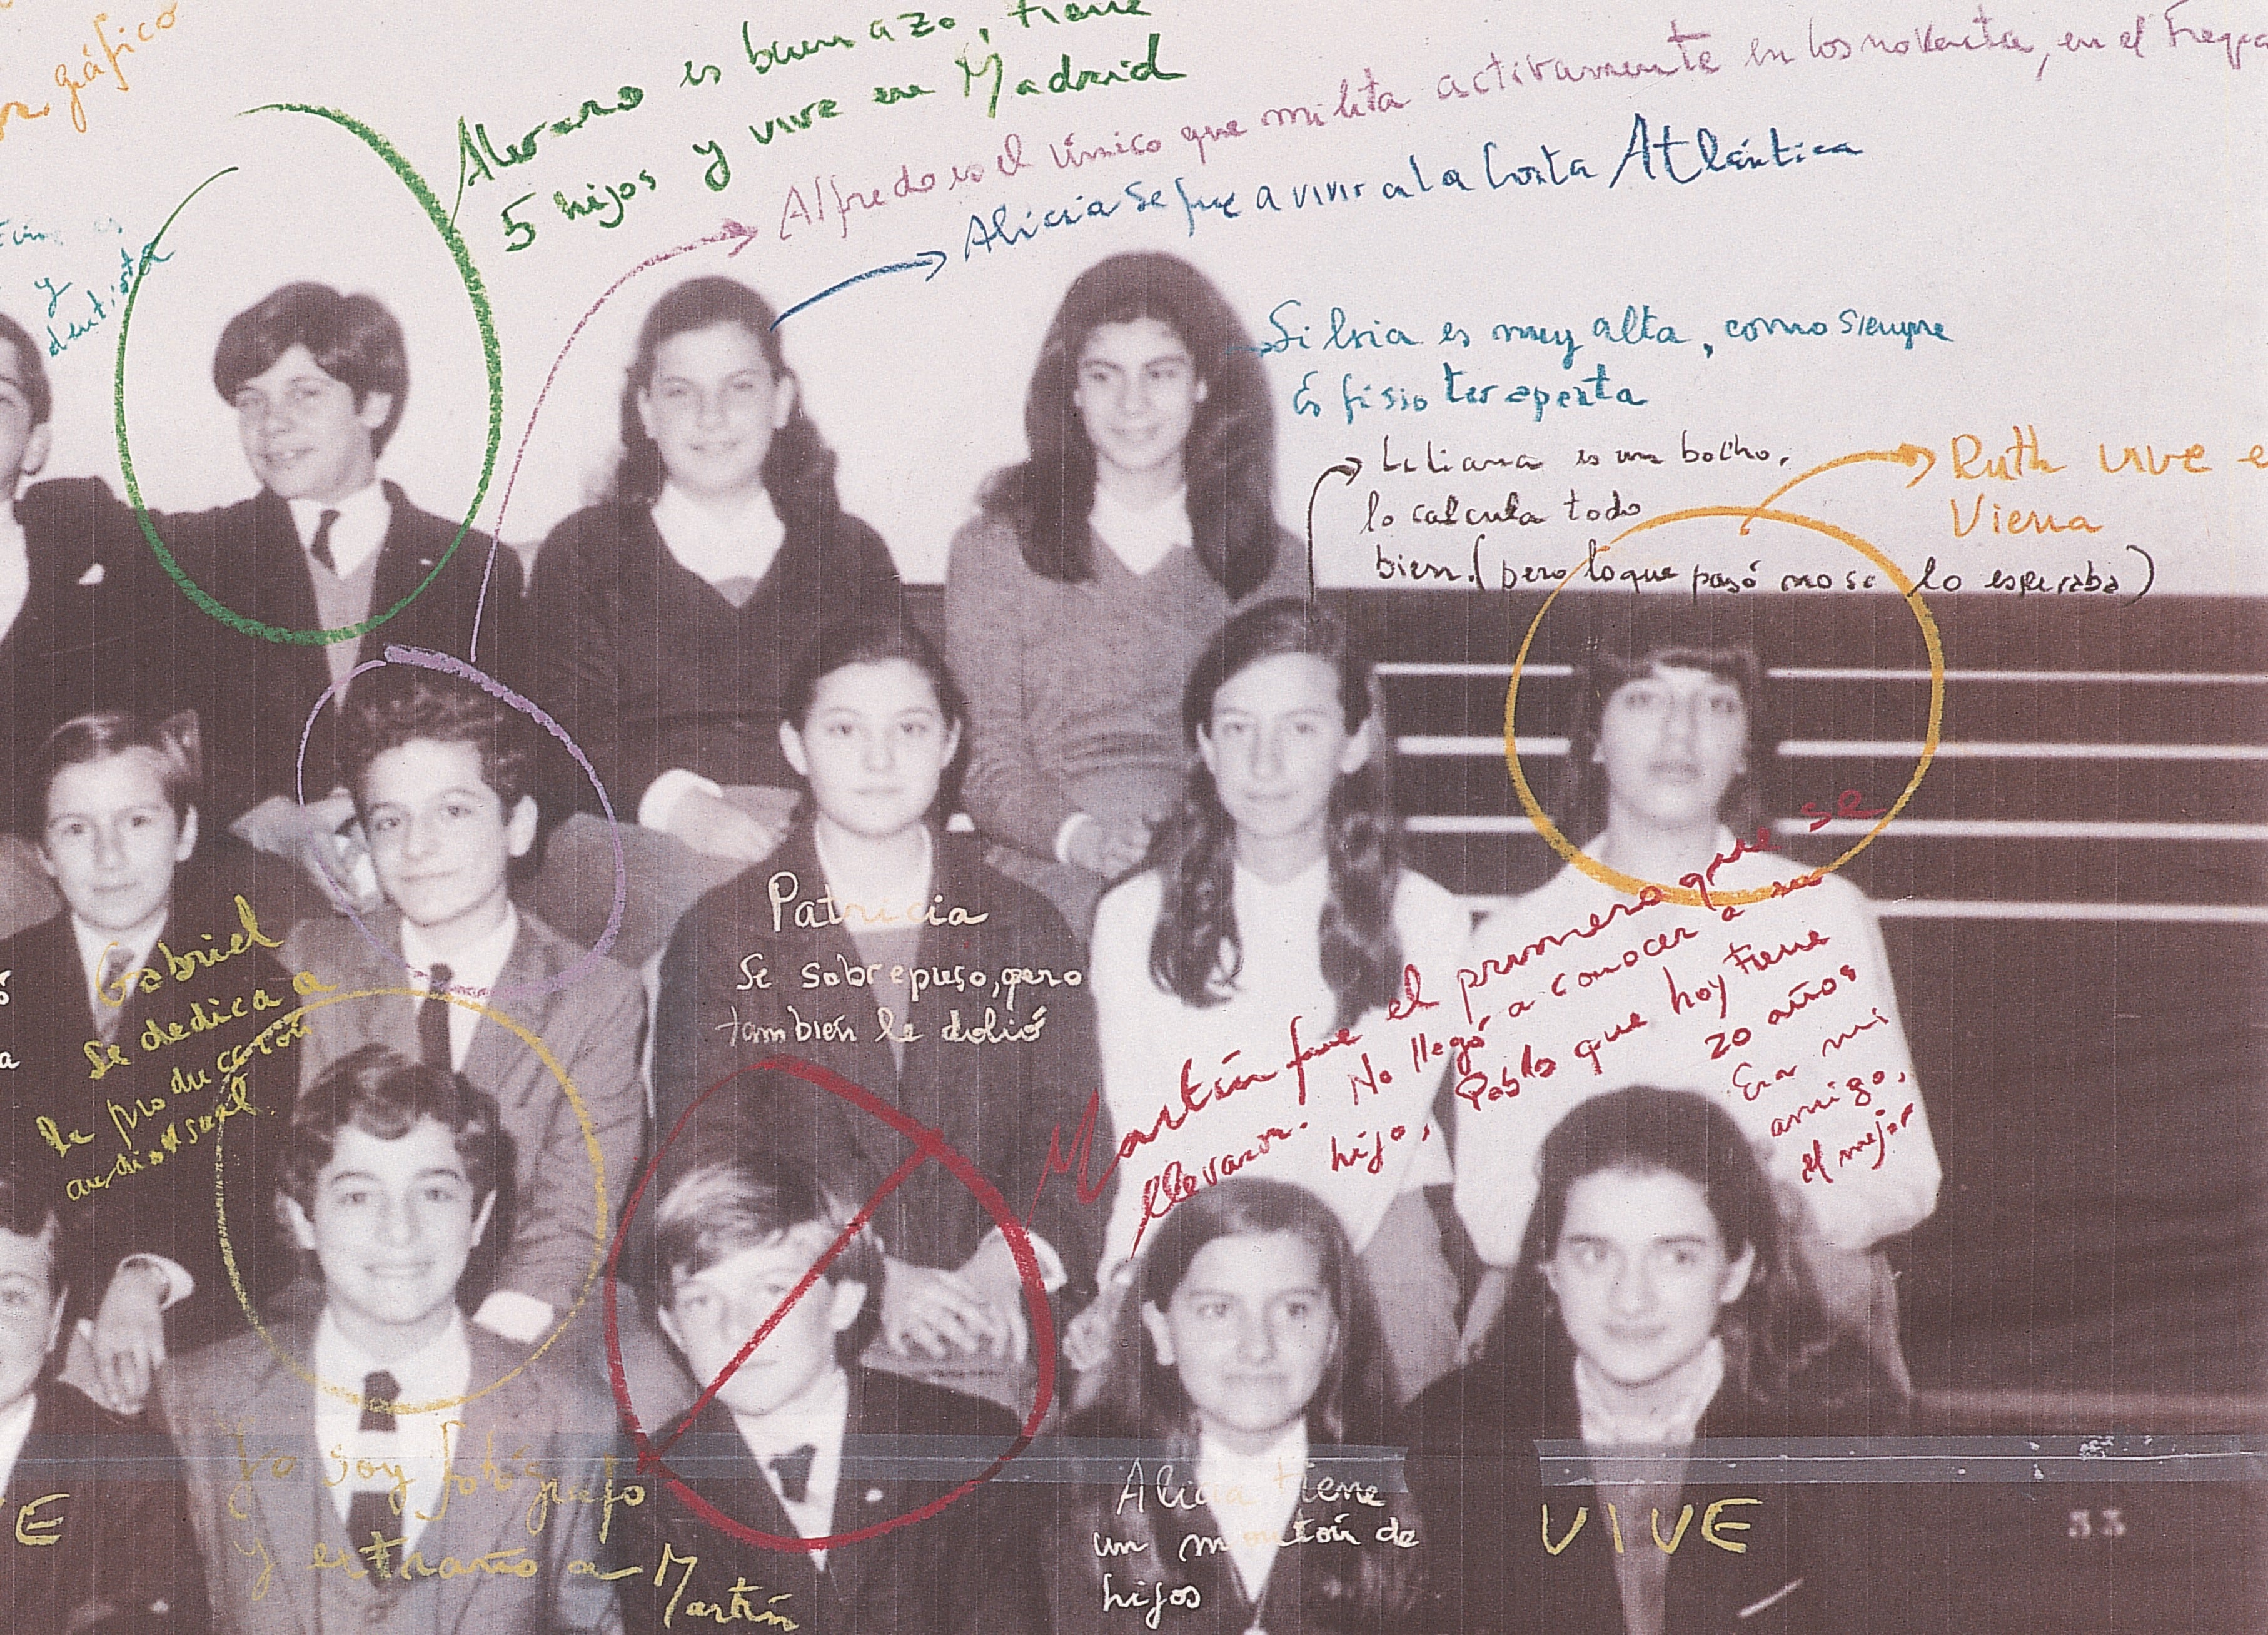 gráfico
y
dentista
Alvaro es buenazo, tiene
5 hijos y vive en Madrid
Alfredo es el único que milita activamente en los noventa, en el
Alicia se fue a vivir a la Costa Atlántica
Silvia es muy alta, como siempre
Es fisioterapeuta
Liliana es un bocho,
lo calcula todo
bien. (pero lo que pasó no se lo esperaba)
Ruth vive e
Viena
Gabriel
se dedica a
la producción
audiovisual.
Patricia
Se sobrepuso, pero
también le dolió
Martín fue el primero que se
llevaron. No llegó a conocer a su
hijo, Pablo que hoy tiene
20 años
Era mi
amigo,
el mejor
Yo soy fotógrafo
y extraño a Martín
Alicia tiene
un montón de
hijos
E
VIVE